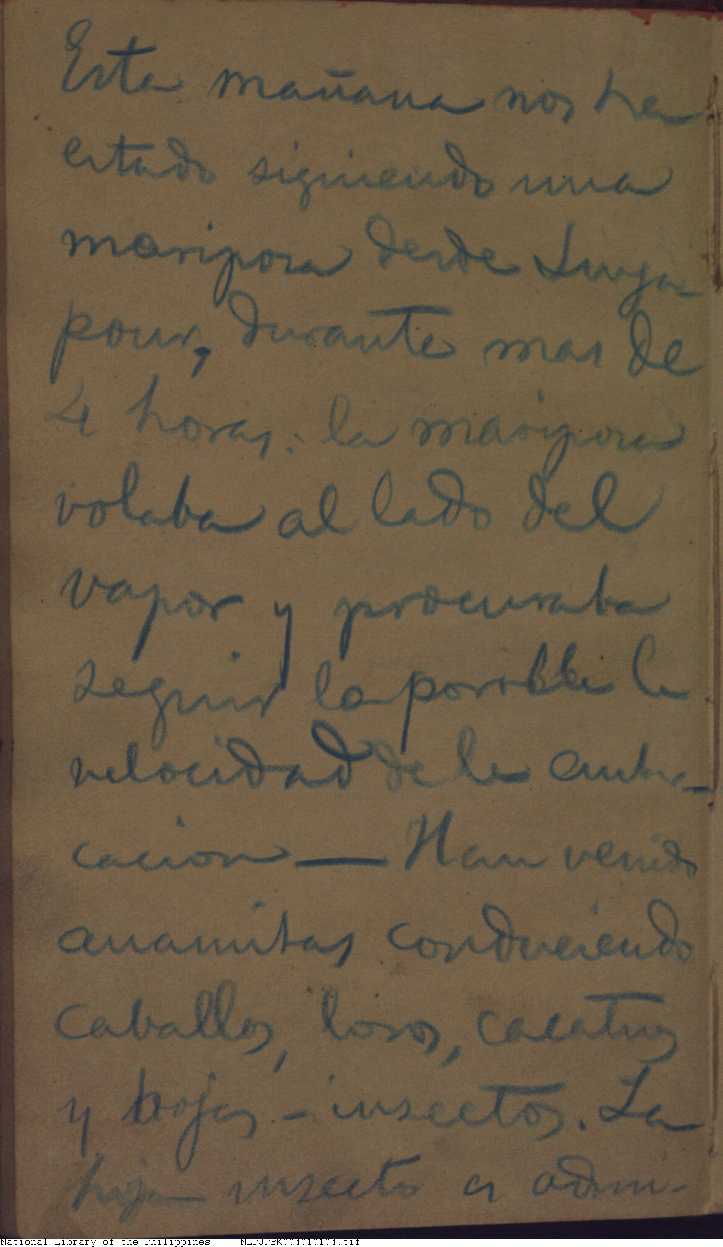 Esta mañana nos ha
estado siguiendo una
mariposa desde Singa-
pour, durante mas de
4 horas: la mariposa
volaba al lado del
vapor y procuraba
seguir la posible la
velocidad de la embar-
cacion — Han venido
anamitas conduciendo
caballos, loros, cacatuas
y hojas - insectos. La
hoja insecto es admi-
National Library of the Philippines